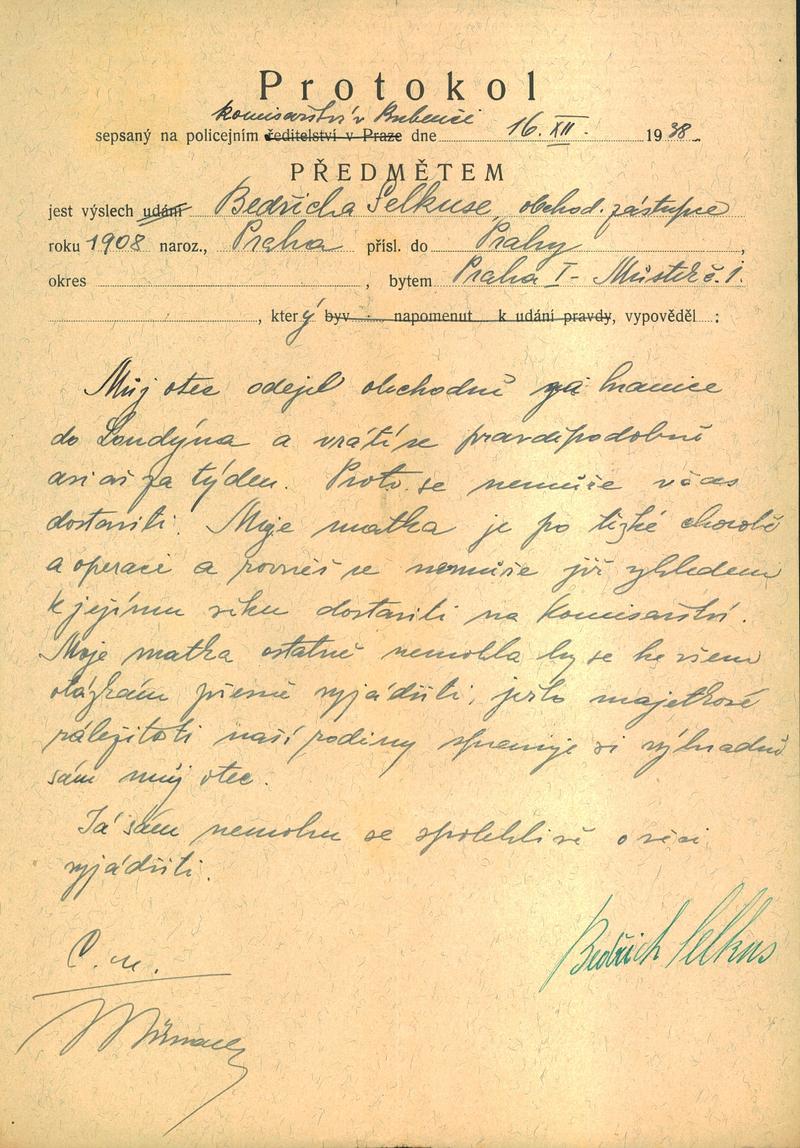 Protokol
komisařství v Bubenči
sepsaný na policejním ředitelství v Praze dne 16. XII. 1938
PŘEDMĚTEM
jest výslech udání Bedřicha Selkuse, obchod. zástupce
roku 1908 naroz., Praha přísl. do Prahy,
okres , bytem Praha I - č. 1.
, který byv napomenut k udání pravdy, vypověděl :
Můj otec odejel obchodně za hranice
do Londýna a vrátí se pravděpodobně
asi až za týden. Proto se nemůže včas
dostaviti. Moje matka je po těžké chorobě
a operaci a rovněž se nemůže již vzhledem
k jejímu věku dostaviti na komisařství.
Moje matka ostatně nemohla by se ke všem
otázkám přesně vyjádřiti, ježto majetkové
záležitosti naší rodiny spravuje si výhradně
sám můj otec.
Já sám nemohu se spolehlivě o věci
vyjádřiti.
Bedřich Selkus